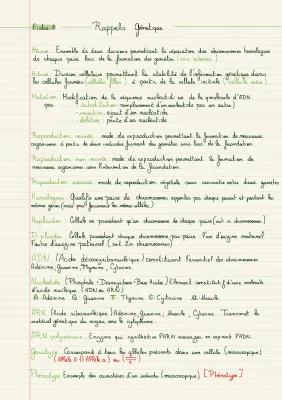 Fiche 1 Rappels Génétique
Méiose Ensemble de deux divisions permettant la séparation des chromosomes homologues
de chaque paire lors de la formation des gamètes
Mitose Division cellulaire permettant la stabilité de l'information génétique dans
les cellules formées (cellules filles) à partir de la cellule initiale (cellule mère)
Mutation Modification de la séquence nucléotidique de la molécule d'ADN
par - substitution remplacement d'un nucléotide par un autre)
- insertion ajout d'un nucléotide
- délétion perte d'un nucléotide
Reproduction sexuée mode de reproduction permettant la formation de nouveaux
organismes à partir de deux individus formant des gamètes unis lors de la fécondation
Reproduction non sexuée mode de reproduction permettant la formation de
nouveaux organismes sans l'intervention de la fécondation.
Reproduction asexuée mode de reproduction végétale sans rencontre entre deux gamètes
Homologues Qualifie une paire de chromosomes apportés par chaque parent et portant les
mêmes gènes (mais pas forcément les mêmes allèles)
Haploïdes Cellule ne possédant qu'un chromosome de chaque paire (soit n chromosomes)
Diploïdes Cellule possédant chaque chromosome par paire l'un d'origine maternel
l'autre d'origine paternel (soit 2n chromosomes)
ADN (Acide désoxyribonucléique) constituant l'essentiel des chromosomes
Adénine, Guanine, Thymine, Cytosine
Nucléotide (Phosphate - Désoxyribose - Base Azotée) Élément constitutif d'une molécule
d'acide nucléique (ADN ou ARN)
A: Adénine G: Guanine T: Thymine C: Cytosine U: Uracile
ARN (Acide ribonucléique) Adénine, Guanine, Uracile, Cytosine Transmet le
matériel génétique du noyau vers le cytoplasme
ARN polymérase Enzyme qui synthétise l'ARN messager en copiant l'ADN.
Génotype Correspond à tous les allèles présents dans une cellule (macroscopique)
Phénotype Ensemble des caractères d'un individu (macroscopique) [Phénotype]